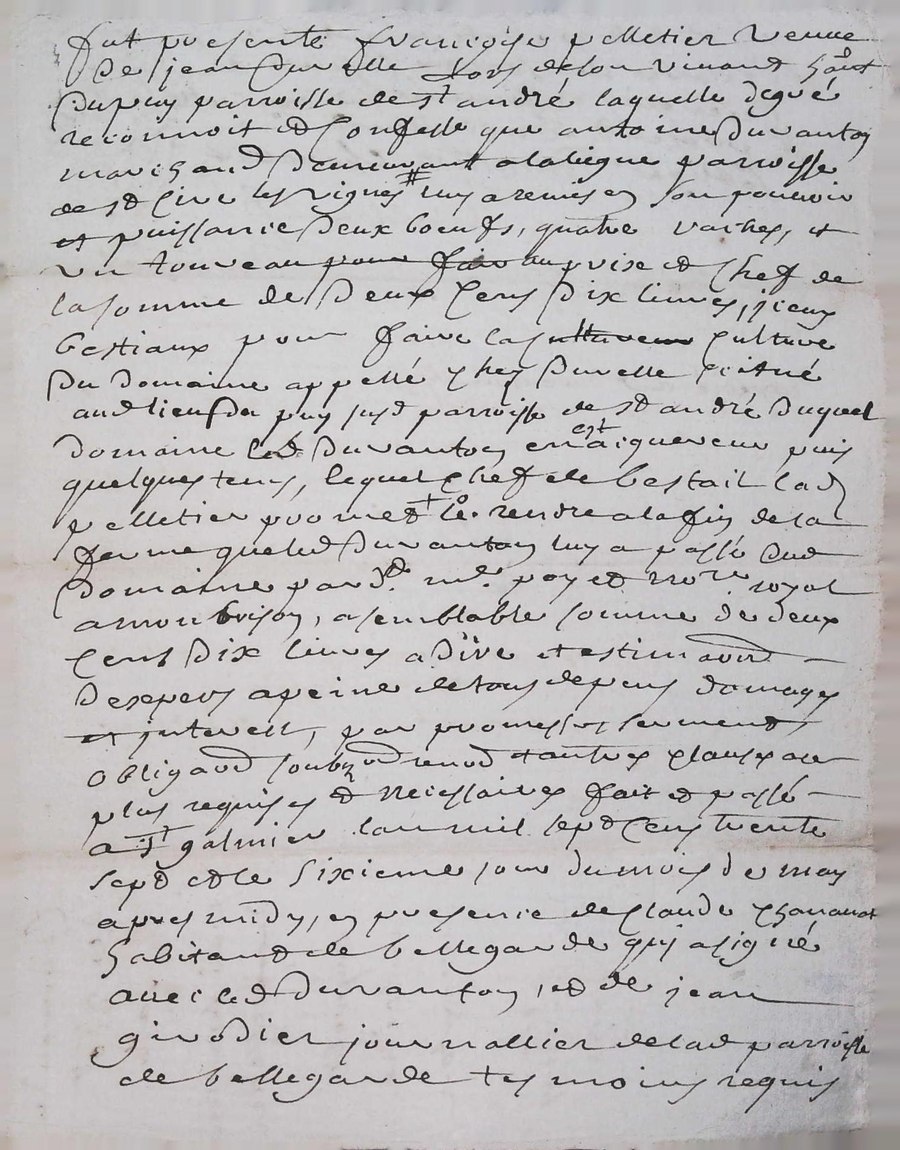 fut presente françoise pelletier veuve
de jean Duvelle lors de son vivant habt
Dupuy parroisse de st andré laquelle de gré
reconnoit et confesse que antoine Duvantoy
marchand Demeurant alabegue parroisse
de st Circ les vignes # luy a remis en son pouvoir
et puissance Deux boeufs, quatre vaches, et
un toureau pour fair au prixe et chef de
la somme de Deux Cens Dix livres, iceux
bestiaux pour faire la culture
Du Domaine appellé chez Duvelle scitué
aud lieu du puy susd parroisse de st andré duquel
Domaine led Duvantoy en est acquereur puis
quelques tems, lequel chef de bestail lad
pelletier promet le rendre a la fin de la
ferme que led Duvantoy luy a passé dud
Domaine pard me poyet nore royal
a monbrison, a semblable somme de deux
Cens Dix livres a dire et estimaon
Dexpers a peine de tous depens domages
et interest, par promesses serment
obligaon soubzon renon et autres clauses au
plus requises et necessaires fait et passé
a st galmier lan mil sept Cens trente
sept et le sixieme jour du mois de may
apres midy, en presence de Claude
habitant de bellegarde qui a signé
avec led Duvantoy, et de jean
girodier journallier de lad parroisse
de bellegarde tesmoins requis